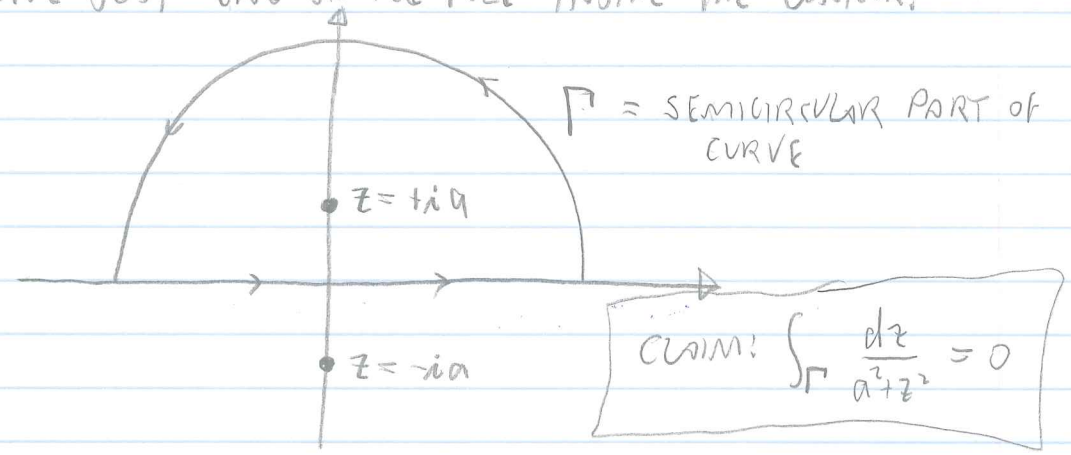 Γ = SEMICIRCULAR PART OF
CURVE
z = +ia
z = -ia
CLAIM: ∫_Γ dz/(a²+z²) = 0